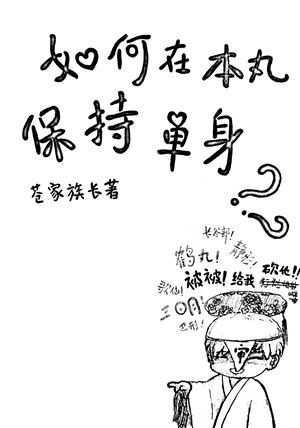 如何在本丸
保持单身
?
苍家族长著
长谷部!
鹤丸!
砍他!!
被被! 给我
歌仙!
三日月
巴形!
审